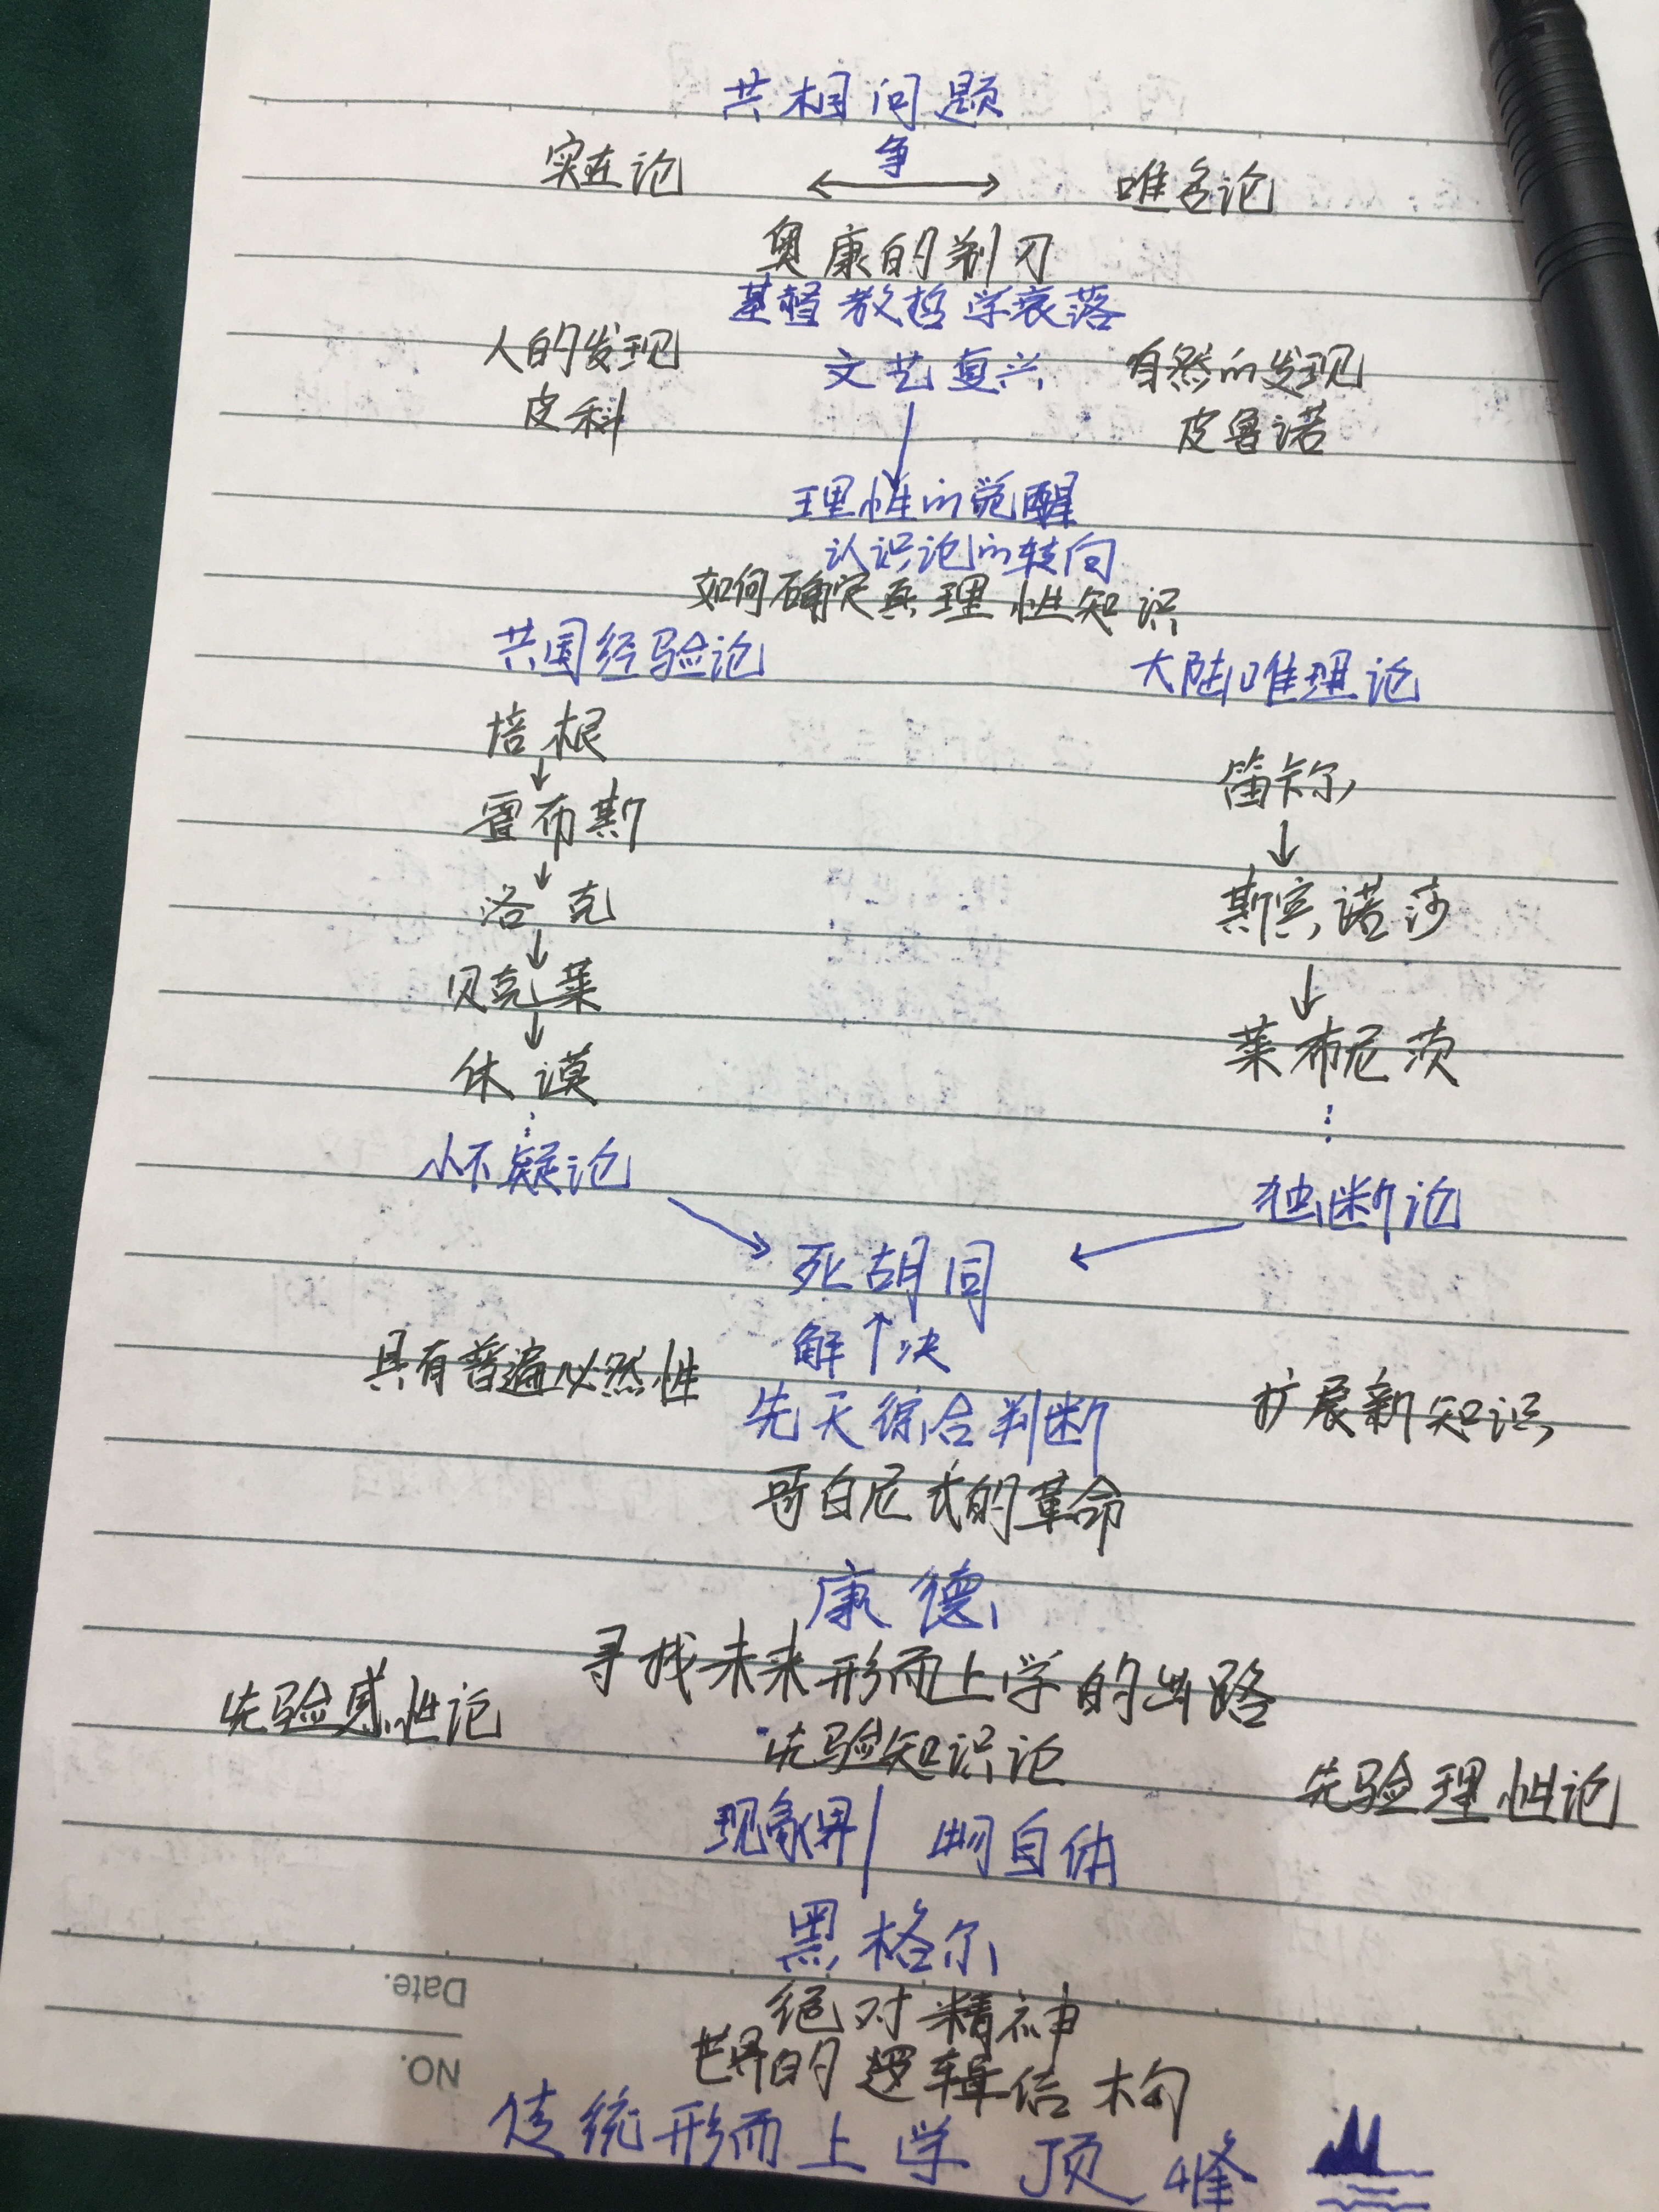 共相问题
实在论 争 唯名论
奥康的剃刀
基督教哲学衰落
人的发现 文艺复兴 自然的发现
皮科 皮鲁诺
理性的觉醒
认识论的转向
如何确定真理性知识
共国经验论 大陆唯理论
培根 笛卡尔
霍布斯
洛克 斯宾诺莎
贝克莱
休谟 莱布尼茨
怀疑论 独断论
死胡同
解决
具有普遍必然性 先天综合判断 扩展新知识
哥白尼式的革命
康德
寻找未来形而上学的出路
先验感性论 先验知识论 先验理性论
现象界 物自体
黑格尔
绝对精神
世界的逻辑结构
传统形而上学 顶峰
Date.
NO.